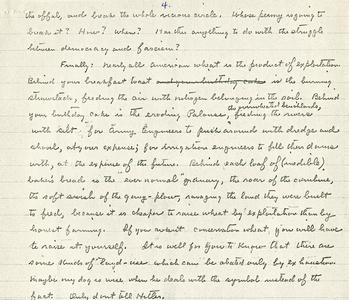 4.
the offal, and break the whole vicious circle. Whose penny is going to
break it? How? When? Has this anything to do with the struggle
between democracy and fascism?
Finally: Nearly all American wheat is the product of exploitation.
Behind your breakfast toast and your birthday cake is the burning
strawstack, feeding the air with nitrogen belonging in the soil. Behind
your birthday cake is the eroding Palouse, the overwheated
feeding the rivers
with silt for Army Engineers to push around with dredge and
shovel, at our expense; for irrigation engineers to fill their dams
with, at the expense of the future. Behind each loaf of (inedible)
baker's bread is the "ever normal" granary, the roar of the combine,
the soft swish of the gang-plow, ravaging the land they were built
to feed, because it is cheaper to raise wheat by exploitation than by
honest farming. If you want conservation wheat, you will have
to raise it yourself. It is well for you to know that there are
some kinds of land-use which can be abated only by exhaustion
maybe my dog is wise when he deals with the symbol instead of the
fact. Only don't tell Hitler.